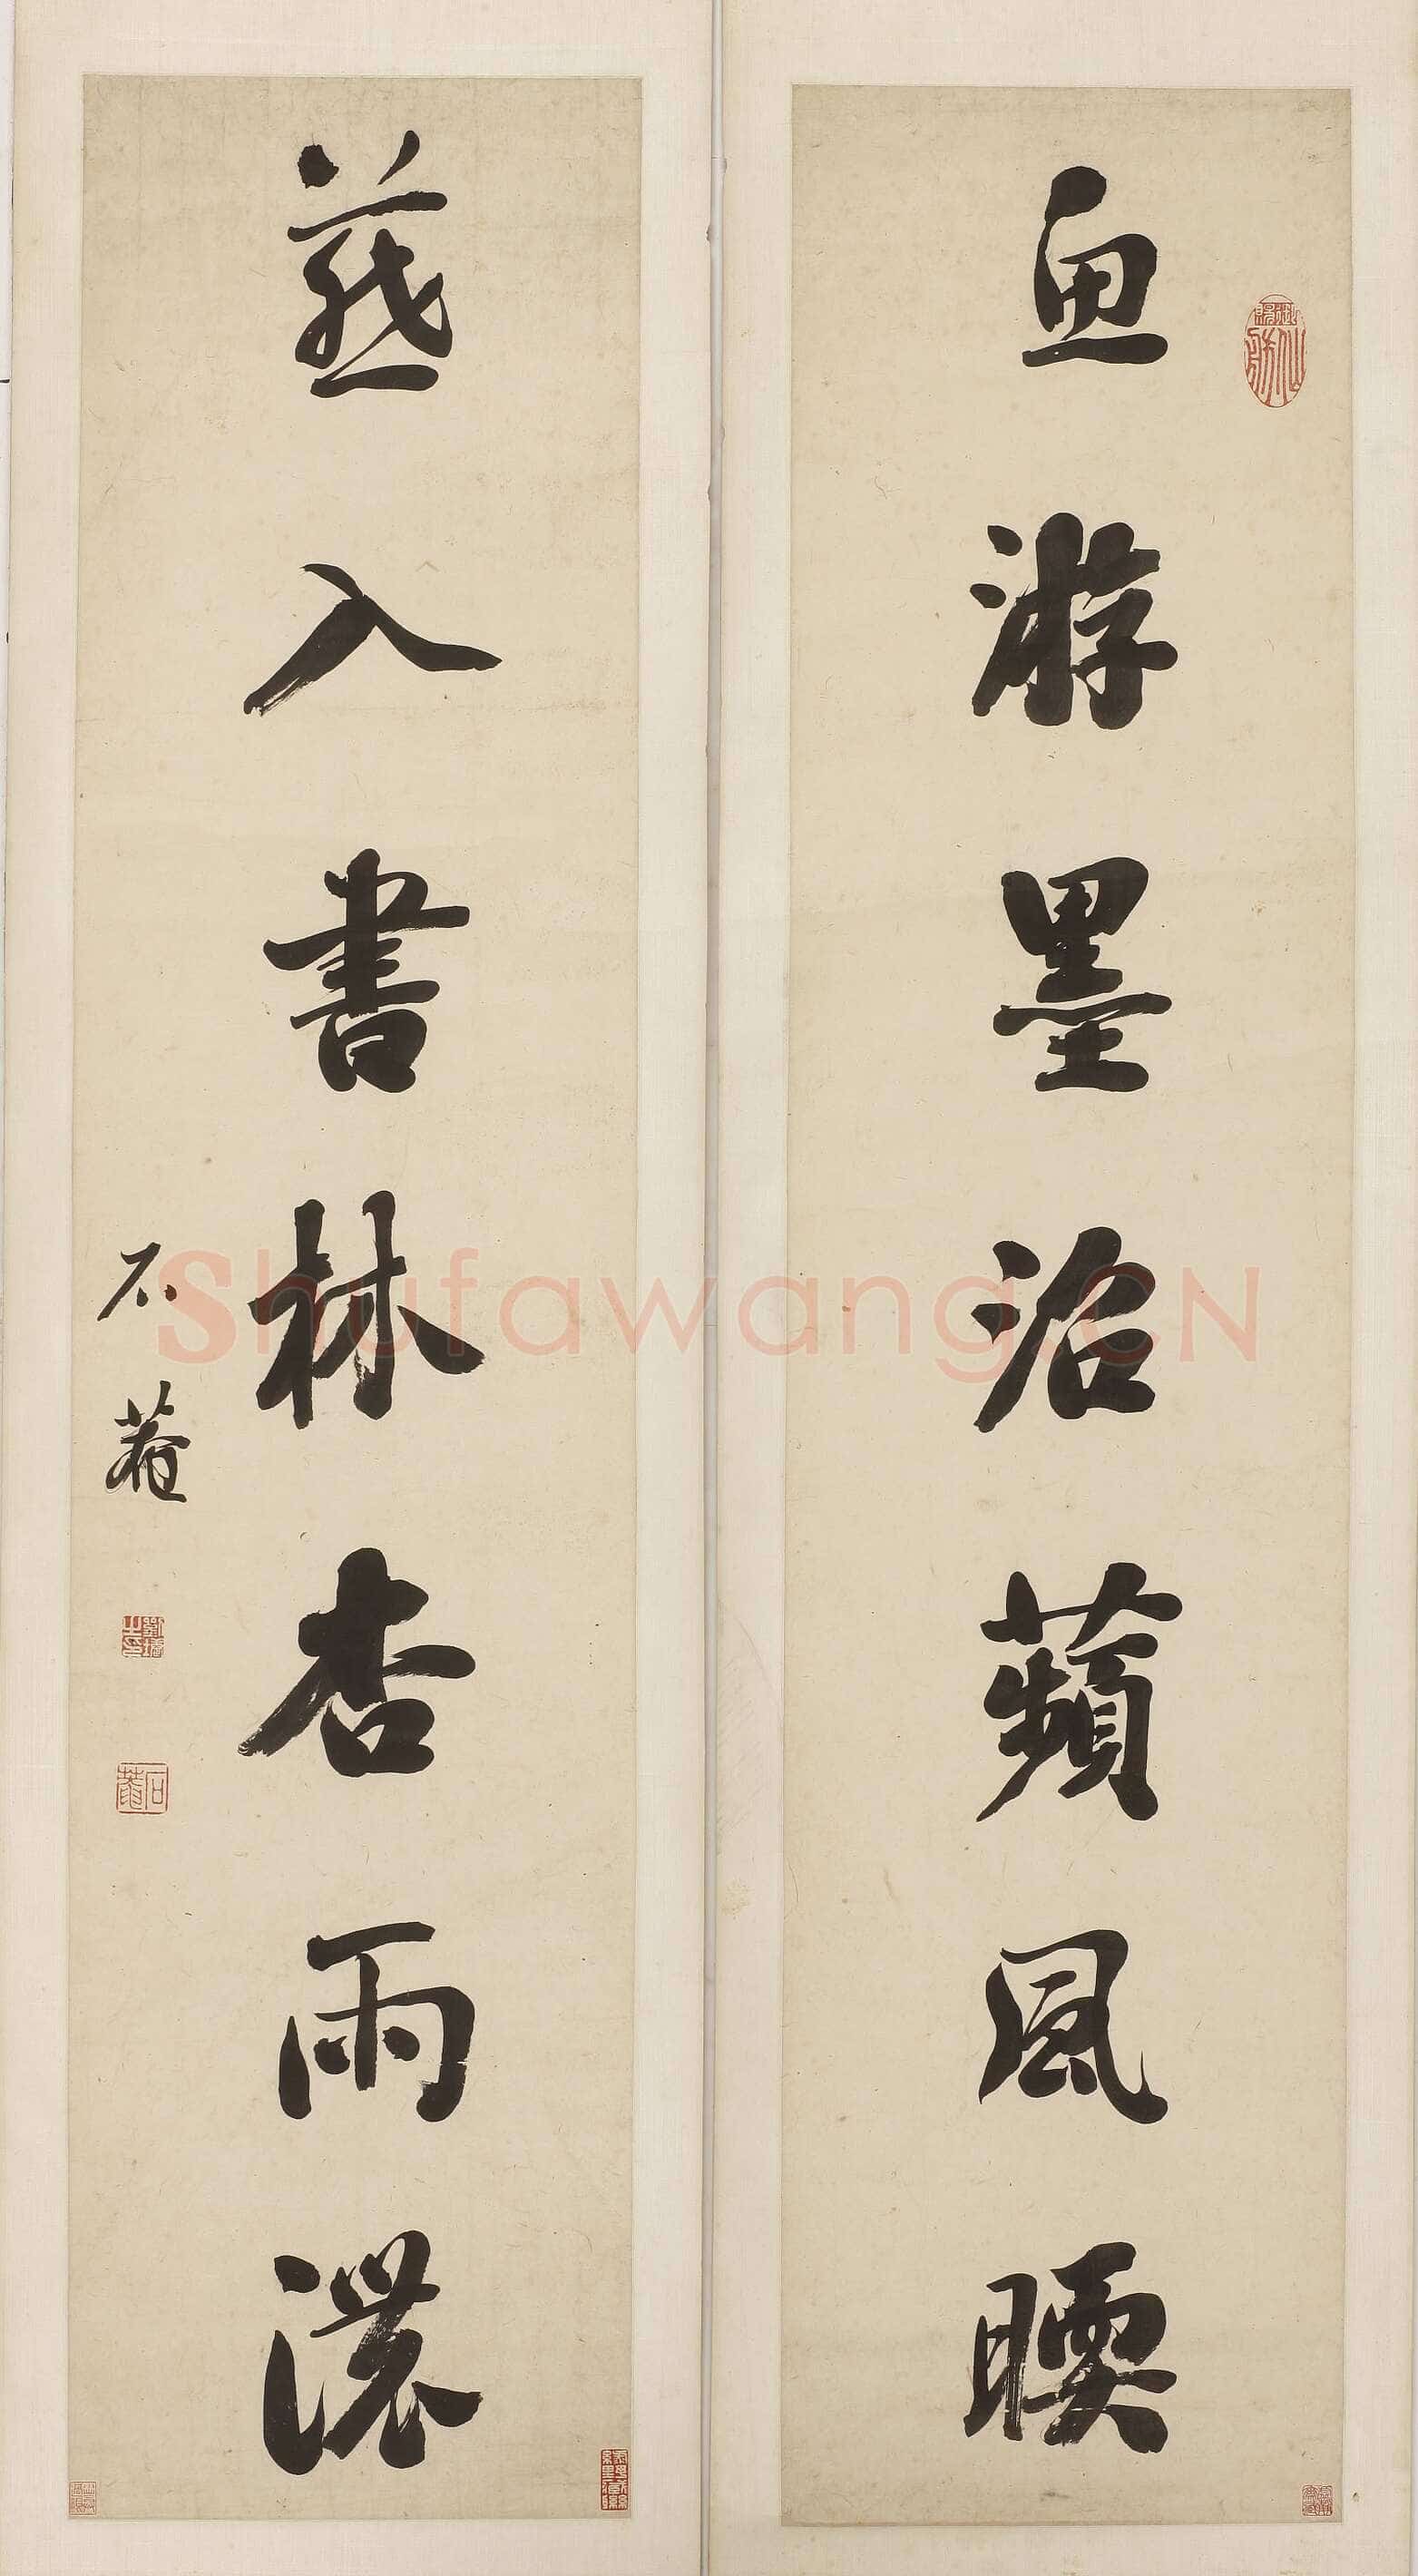 魚游墨沼蘋風暖
燕入書林杏雨濃
石菴
劉墉之印
石菴
Shufawang.CN